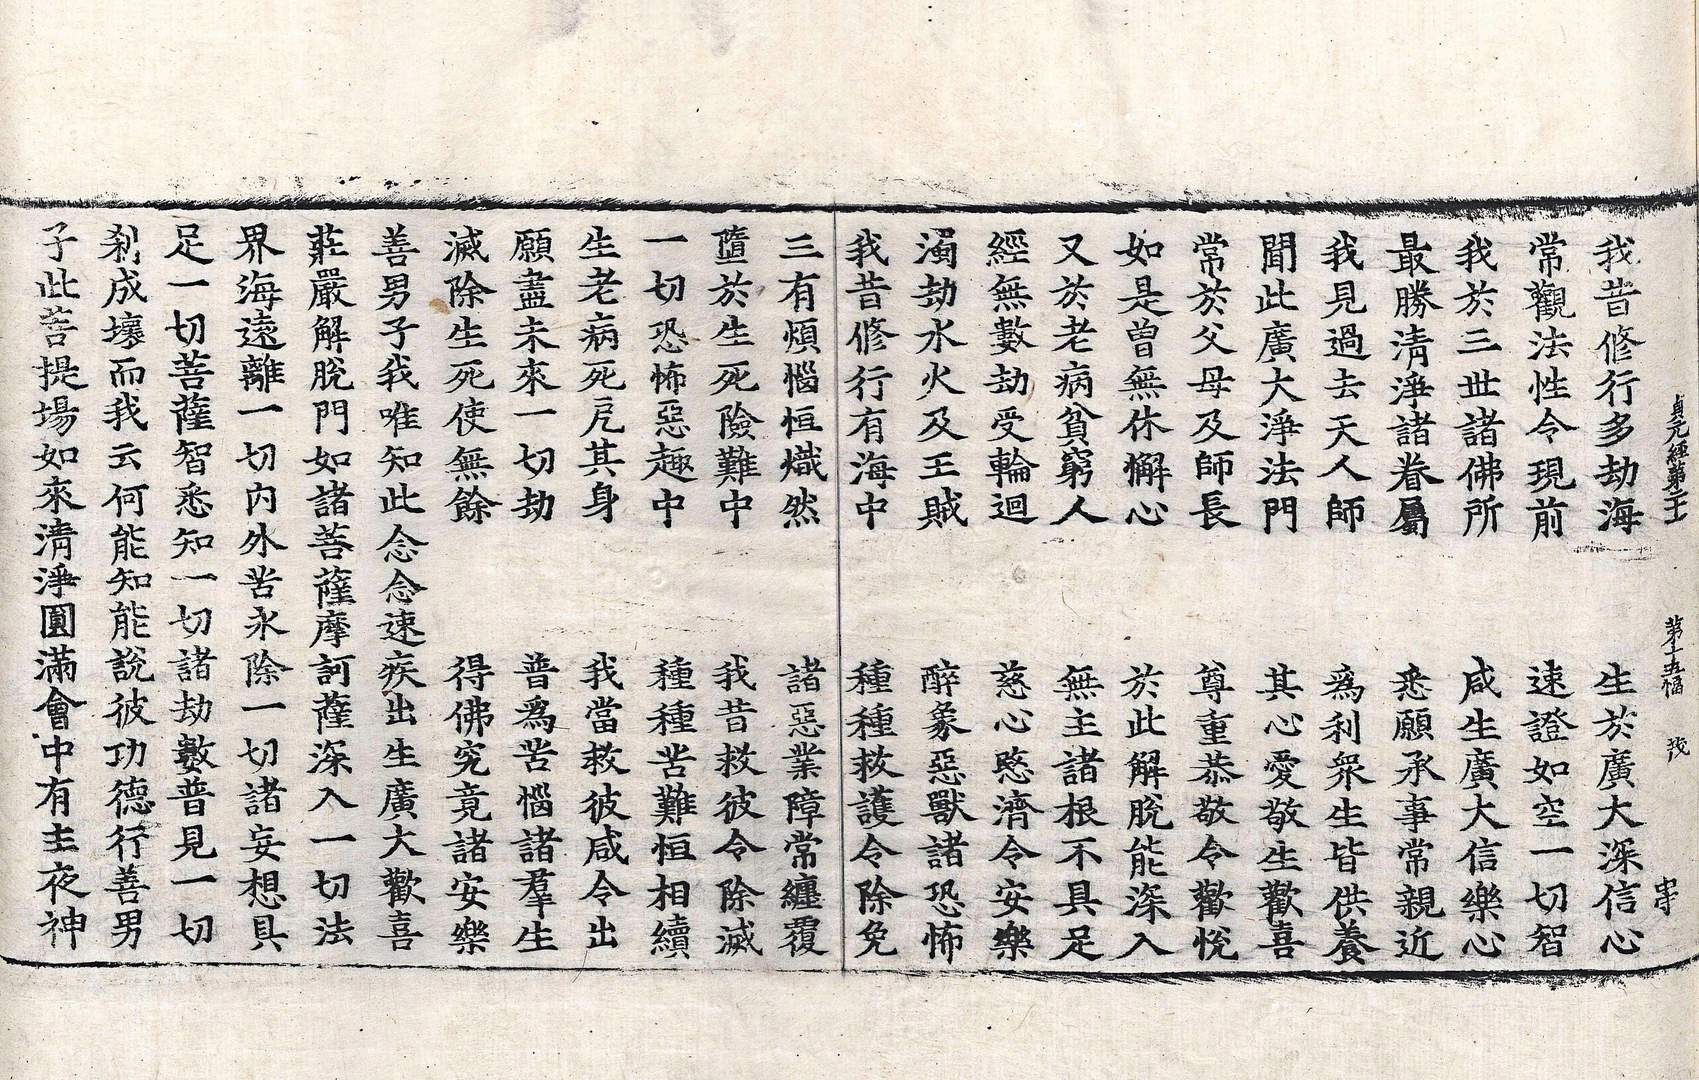 貞元經第二十一 第十五幅 茂 字
我昔修行多劫海 生於廣大深信心
常觀法性令現前 速證如空一切智
我於三世諸佛所 咸生廣大信樂心
最勝清淨諸眷屬 悉願承事常親近
我見過去天人師 為利眾生皆供養
聞此廣大淨法門 其心愛敬生歡喜
常於父母及師長 尊重恭敬令歡悅
如是曾無休懈心 於此解脫能深入
又於老病貧窮人 無主諸根不具足
經無數劫受輪迴 慈心愍濟令安樂
濁劫水火及王賊 醉象惡獸諸恐怖
我昔修行有海中 種種救護令除免
三有煩惱恒熾然 諸惡業障常纏覆
墮於生死險難中 我昔救彼令除滅
一切恐怖惡趣中 種種苦難恒相續
生老病死戹其身 我當救彼咸令出
願盡未來一切劫 普為苦惱諸羣生
滅除生死使無餘 得佛究竟諸安樂
善男子我唯知此念念速疾出生廣大歡喜
莊嚴解脫門如諸菩薩摩訶薩深入一切法
界海遠離一切內外苦永除一切諸妄想具
足一切菩薩智悉知一切諸劫數普見一切
剎成壞而我云何能知能說彼功德行善男
子此菩提場如來清淨圓滿會中有主夜神